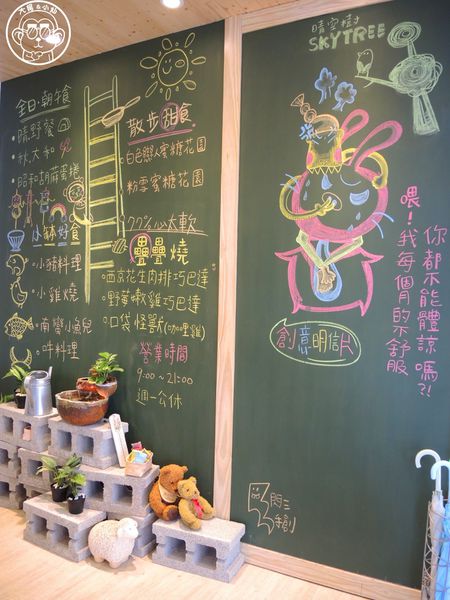 大手&小貼
全日‧朝午食
晴野餐
秋大和
昭和胡蔴蛋捲
小缽好食
小豬料理
小雞燒
南蠻小魚兒
牛料理
散步甜食
白色戀人蜜糖花園
粉雪蜜糖花園
疊疊燒
西京花生肉排巧巴達
野莓嫩雞巧巴達
口袋怪獸(咖哩雞)
營業時間
9:00~21:00
週一公休
晴空樹
SKYTREE
喂!我每個月的不舒服
你都不能體諒嗎?!
創意明信片
閃三
手創